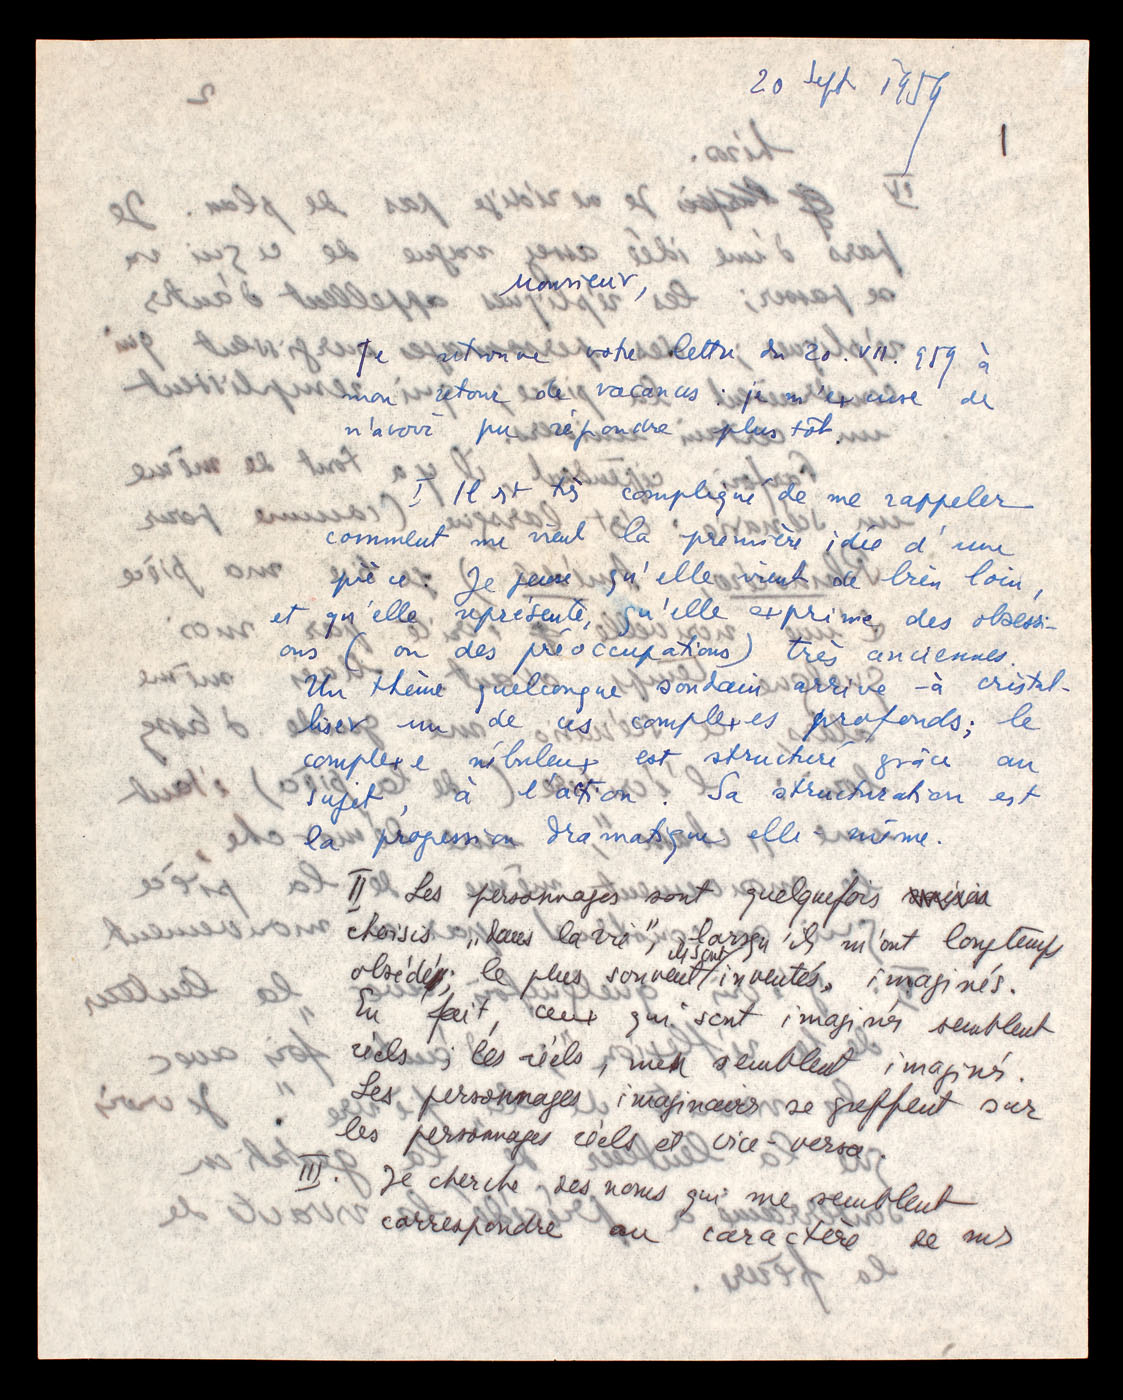 20 Sept 1959
1
Monsieur,
Je retrouve votre lettre du 20.VII.959 à
mon retour de vacances : je m'excuse de
n'avoir pu répondre plus tôt.
I Il est très compliqué de me rappeler
comment me vient la première idée d'une
pièce. Je pense qu'elle vient de bien loin,
et qu'elle représente, qu'elle exprime des obsessi-
ons (ou des préoccupations) très anciennes.
Un thème quelconque soudain arrive à cristal-
liser un de ces complexes profonds; le
complexe nébuleux est structuré grâce au
sujet, à l'action. Sa structuration est
la progression dramatique elle-même.
II Les personnages sont quelquefois
choisis „dans la vie", lorsqu'ils m'ont longtemps
obsédé; le plus souvent ils sont inventés, imaginés.
En fait, ceux qui sont imaginés semblent
réels ; les réels, me semblent imaginés.
Les personnages imaginaires se greffent sur
les personnages réels et vice-versa.
III. Je cherche des noms qui me semblent
correspondre au caractère de mes